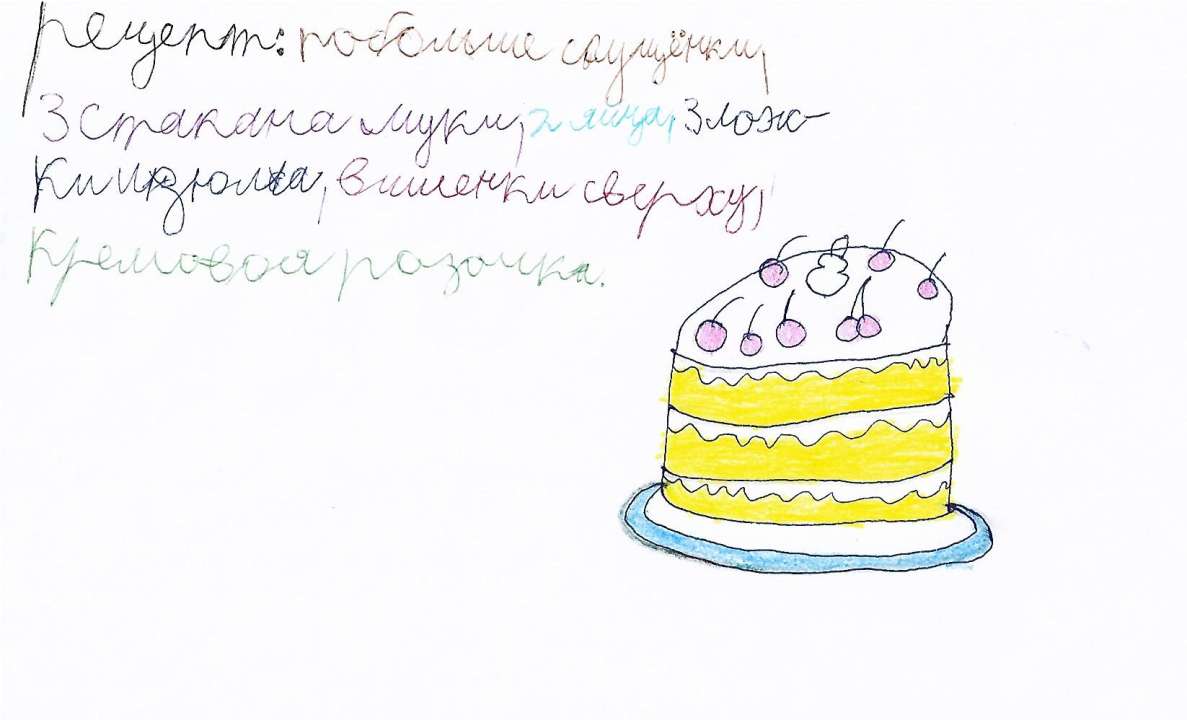 рецепт: побольше сгущёнки,
3 стакана муки, 2 яйца, 3 лож-
ки изюма, вишенки сверху,
кремовая розочка.